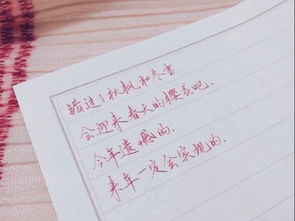 错过了秋枫和冬雪
会迎来春天的樱花吧.
今年遗憾的.
来年一定会实现的.